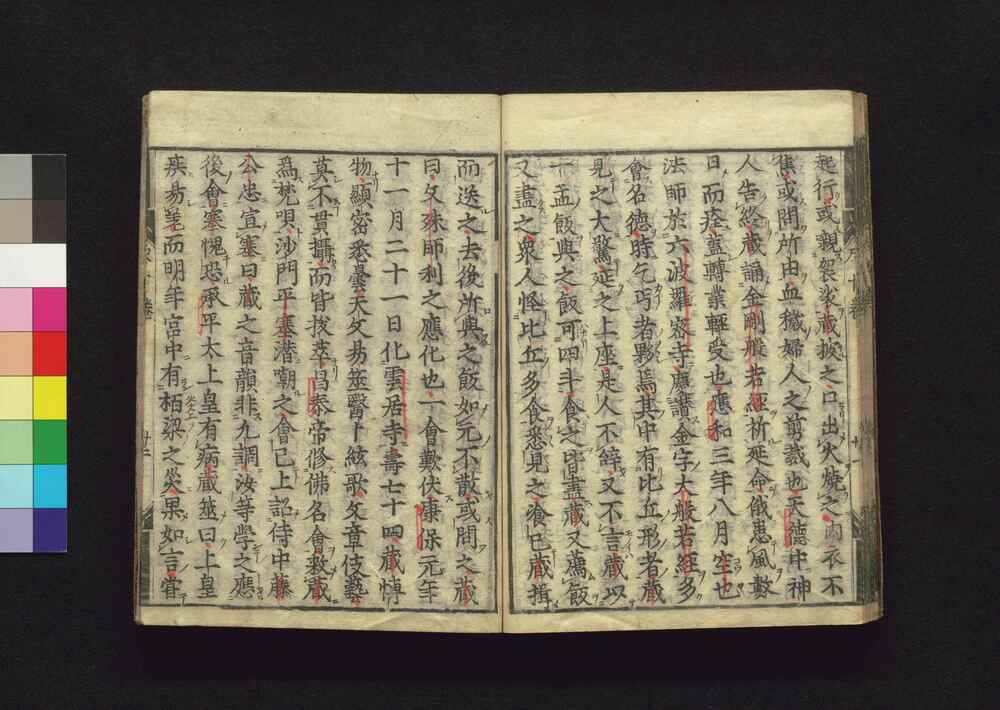 起行或親袈裟藏披之口出火燒之内衣不
隻或問所由血穢婦人之剪裁也天德中神
人告終藏誦金剛般若經祈延命俄患風數
日而痊蓋轉業輕受也應和三年八月空也
法師於六波羅蜜寺慶讃金字大般若經多
會名德時乞丐者夥焉其中有比丘形者藏
見之大驚延之上座是人不辞又不言藏以
一盂飯與之飯可四斗食之皆盡藏又薦飯
又盡之衆人怪比丘多食悉見之飡已藏揖
而送之去後所與之飯如元不散或問之藏
曰文殊師利之應化也一會歎伏康保元年
十一月二十一日化雲居寺壽七十四藏博
物顯密悉曇天文易筮醫卜絃歌文章伎藝
莫不貫攝而皆拔萃昌泰帝修佛名會敕藏
爲梵唄沙門平塞潜嘲之會已上詔侍中藤
公忠宣塞曰藏之音韻非九調汝等學之應
後會塞愧恐承平太上皇有病藏筮曰上皇
疾易差而明年宮中有栢梁之災果如言甞